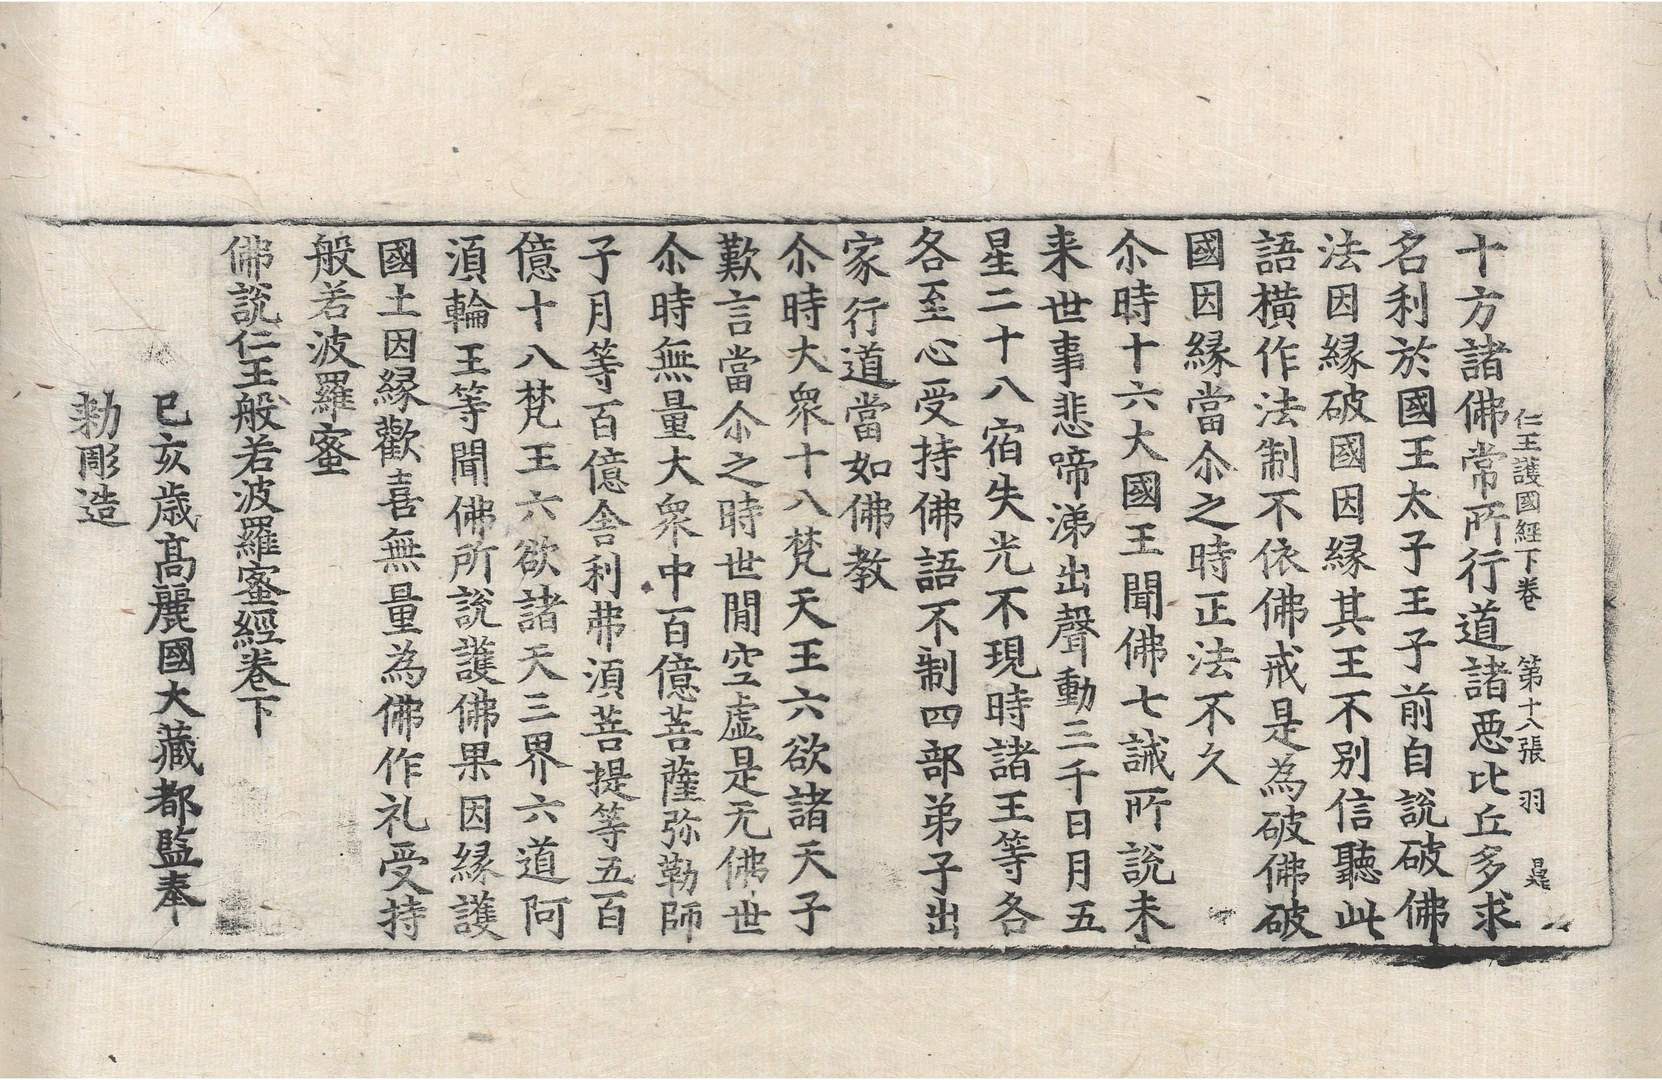 仁王護國經下卷 第十八張 羽
十方諸佛常所行道諸惡比丘多求
名利於國王太子王子前自說破佛
法因縁破國因縁其王不别信聽此
語橫作法制不依佛戒是為破佛破
國因縁當尒之時正法不久
尒時十六大國王聞佛七誡所說未
来世事悲啼涕出聲動三千日月五
星二十八宿失光不現時諸王等各
各至心受持佛語不制四部弟子出
家行道當如佛教
尒時大衆十八梵天王六欲諸天子
歎言當尒之時世閒空虛是无佛世
尒時無量大衆中百億菩薩弥勒師
子月等百億舎利弗湏菩提等五百
億十八梵王六欲諸天三界六道阿
湏輪王等聞佛所說護佛果因縁護
國土因縁歡喜無量為佛作礼受持
般若波羅蜜
佛說仁王般若波羅蜜經卷下
己亥歳高麗國大藏都監奉
勑彫造